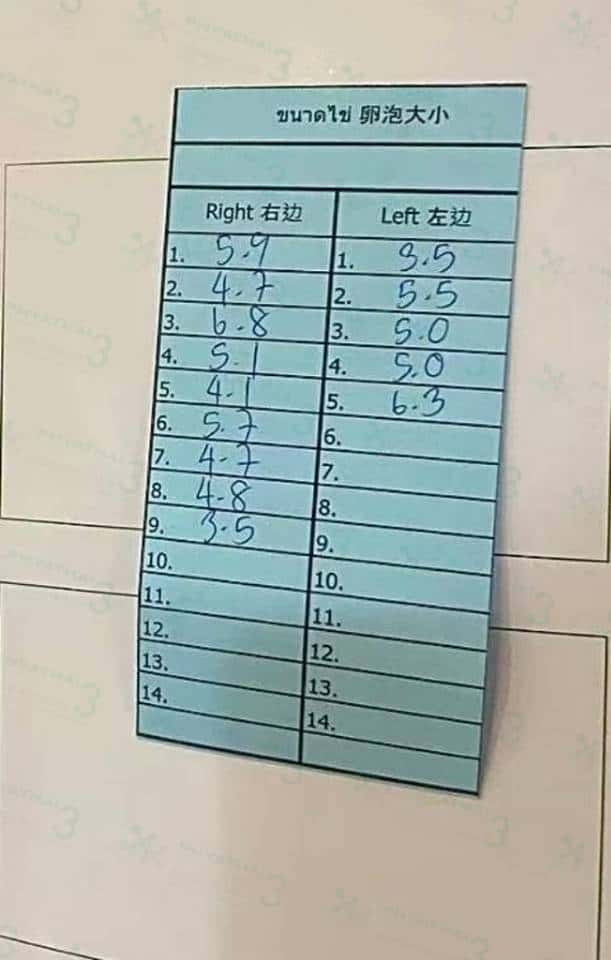 ขนาดไข่ 卵泡大小
Right 右边 Left 左边
1. 5.9 1. 3.5
2. 4.7 2. 5.5
3. 6.8 3. 5.0
4. 5.1 4. 5.0
5. 4.1 5. 6.3
6. 5.7 6.
7. 4.7 7.
8. 4.8 8.
9. 3.5 9.
10. 10.
11. 11.
12. 12.
13. 13.
14. 14.